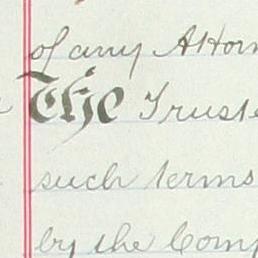 of any Attorn
The Truste
such terms
by the Comp